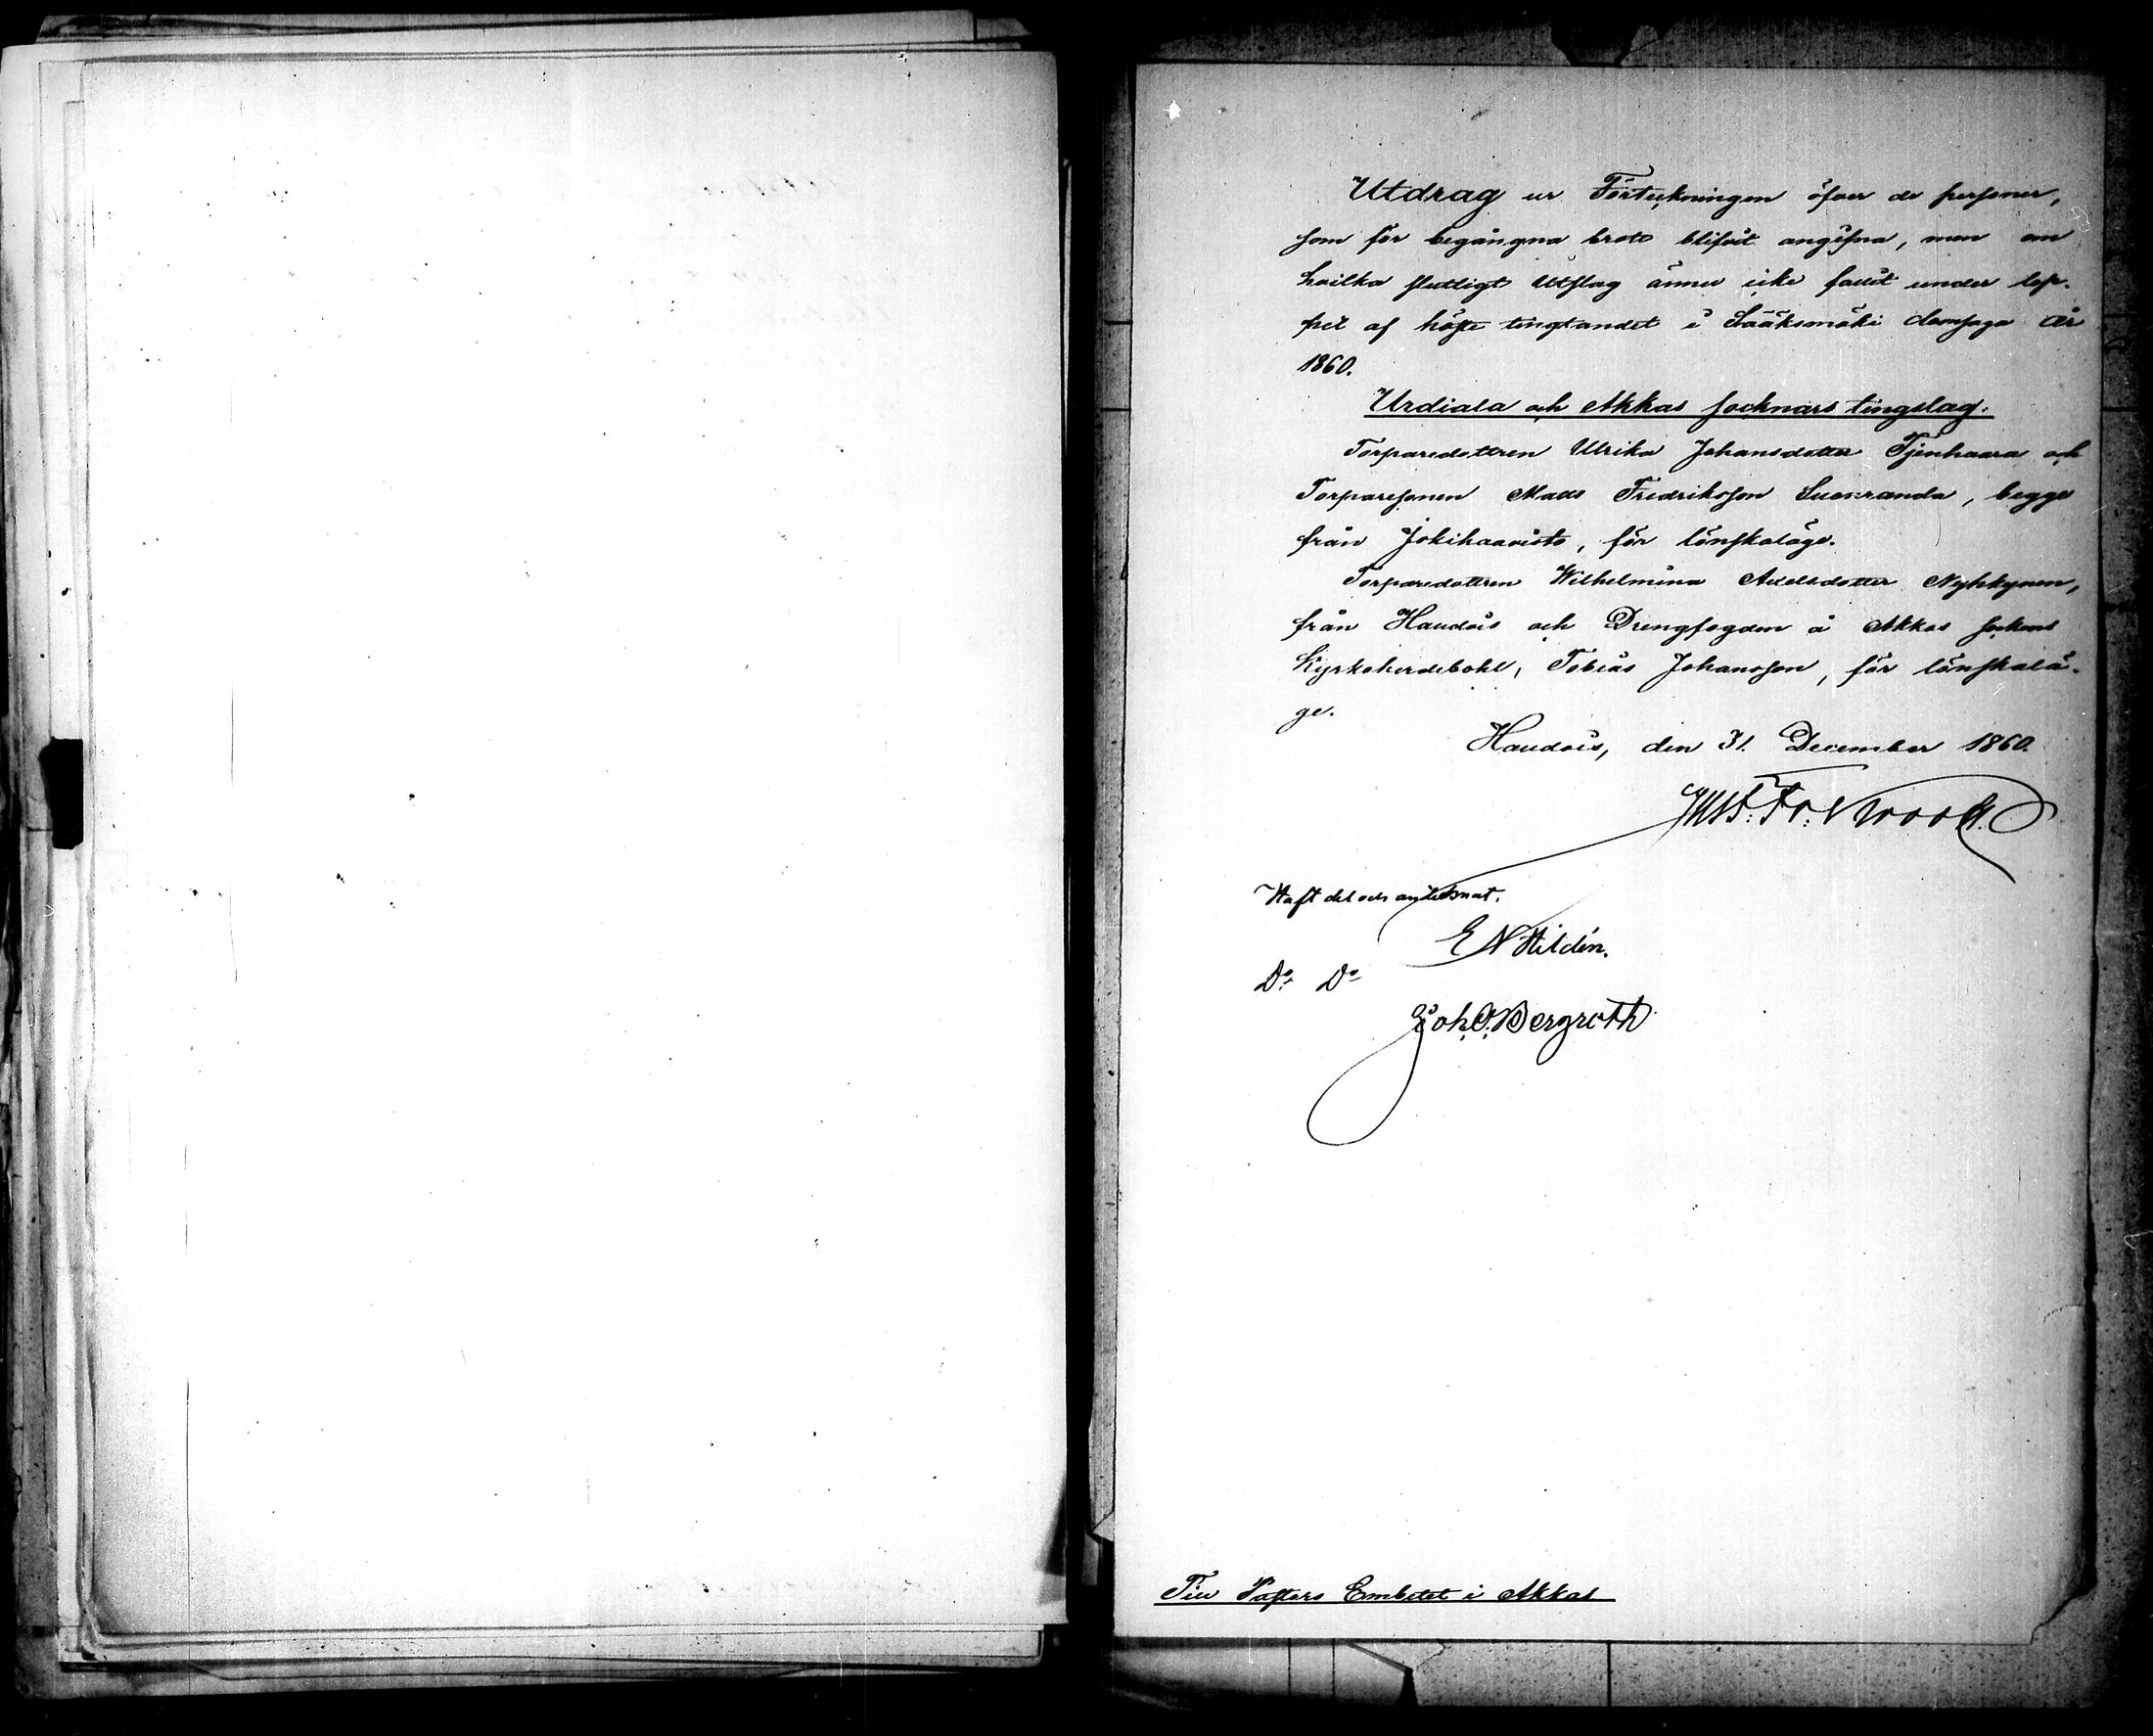 Utdrag ur Förteckningen öfver de personer,
som för begångna brott blifvit angifna, men om
hvilka slutligt Utslag ännu icke fallit under lop-
pet af höste tingtandet i Sääksmäki domsaga år
1860.
Urdiala och Akkas socknars tingslag.
Torparedottren Ulrika Johansdotter Tjenhaara och
Torparesonen Mats Fredriksson Suonranda, begge
från Jokihaavisto, för lönskaläge.
Torparedottren Wilhelmina Axelsdotter Nyhkynen,
från Haudois och Drengfogden å Akkas sockens
Kyrkoherdebohl, Tobias Johansson, för lönskalä-
ge.
Haudois, den 31. December 1860.
Haft del och antecknat.
E N Hildén.
Do Do
Joh. O. Bergroth
Till Pastors Embetet i Akkas